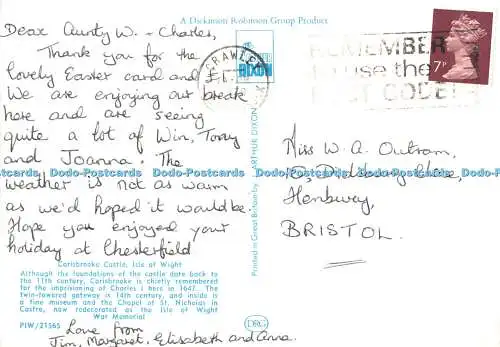 A Dickinson Robinson Group Product
Dear Aunty W. - Charles,
Thank you for the
lovely Easter card and
We are enjoying our break
here and are seeing
quite a lot of Win, Tony
and Joanna. The
weather is not as warm
as we'd hoped it would be.
Hope you enjoyed your
holiday at Chesterfield
Carisbrooke Castle, Isle of Wight
Although the foundations of the castle date back to
the 11th century, Carisbrooke is chiefly remembered
for the imprisoning of Charles I here in 1647. The
Twin-towered gateway is 14th century, and inside is
a fine museum and the Chapel of St. Nicholas in
Castro, now rededicated as the Isle of Wight
War Memorial
PIW/21565
Love from
Jim, Margaret, Elisabeth and Anna.
CRAWLEY
DIXON
Printed in Great Britain by ARTHUR DIXON
DRG
REMEMBER
use the
POST CODE
7P
Miss W. A. Outram,
Close,
Henbury,
BRISTOL.
Dodo-Postcards Dodo-Postcards Dodo-Postcards Dodo-Postcards Dodo-Postcards